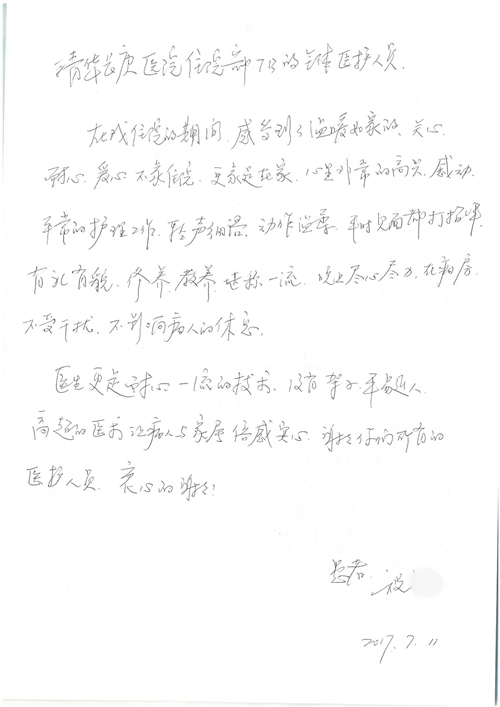 清华长庚医院住院部7B的全体医护人员.
在我住院的期间,感受到了温暖如家的、关心
耐心、爱心不象住院、更象是在家、心里非常的高兴、感动
平常的护理工作、轻声细语、动作温柔、平时见面都打招呼
有礼有貌、修养、教养、堪称一流、晚上尽心尽力、在病房
不受干扰、不影响病人的休息.
医生更是耐心一流的技术、没有架子、平易近人
高超的医术让病人与家属倍感安心、谢谢你们所有的
医护人员、衷心的谢谢!
患者.
2017.7.11